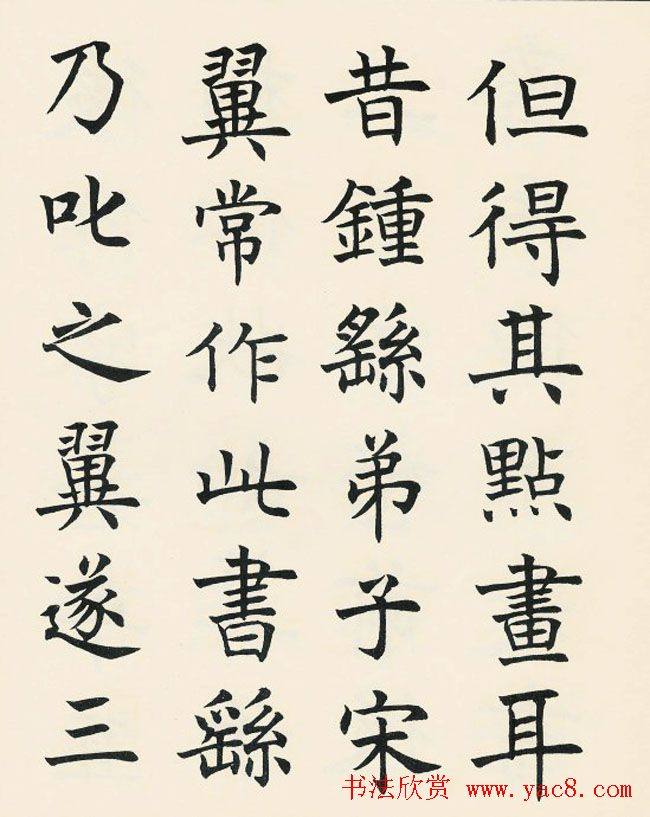 但得其點畫耳
昔鍾繇弟子宋
翼常作此書繇
乃叱之翼遂三
书法欣赏 www.yac8.com